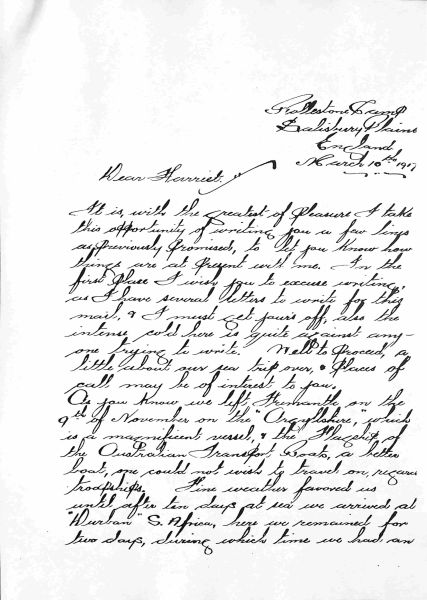 Rollestone Camp
Salisbury Plains
England
March 10th 1917
Dear Harriet.
It is, with the greatest of Pleasure I take
this opportunity of writing you a few lines
as Previously Promised, to let you know how
things are at Present with me. In the
first Place I wish you to excuse writing,
as I have several letters to write for this
mail, & I must get yours off, also the
intense cold here is quite against any-
one trying to write. Well to Proceed, a
little about our sea trip over, & Places of
call may be of interest to you.
As you know we left Fremantle on the
9th of November on the "Argyllshire," which
is a magnificent vessel, & the Flagship of
the Australian Transport Boats, a better
boat, one could not wish to travel on,
troopships. Fine weather favored us
until after ten days at sea we arrived at
"Durban" S. Africa, here we remained for
two days, during which time we had an